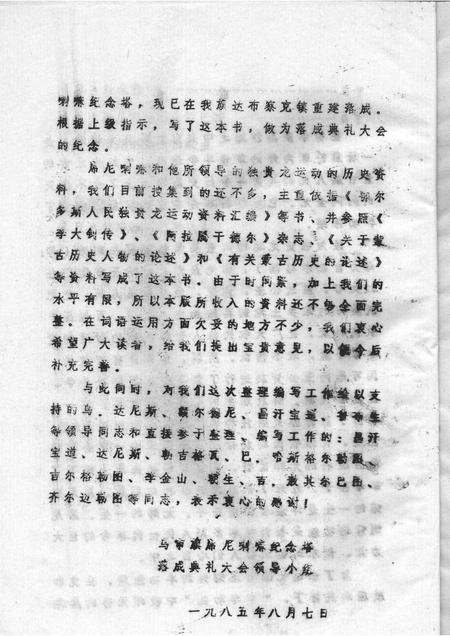 喇嘛纪念塔，现已在我旗达布察克镇重建落成。
根据上级指示，写了这本书，做为落成典礼大会
的纪念。
席尼喇嘛和他所领导的独贵龙运动的历史资
料，我们目前搜集到的还不多，主要依据《鄂尔
多斯人民独贵龙运动资料汇编》等书、并参照《
李大钊传》、《阿拉腾干德尔》杂志、《关于蒙
古历史人物的论述》和《有关蒙古历史的论述》
等资料写成了这本书。由于时间紧，加上我们的
水平有限，所以本版所收入的资料还不够全面完
整。在词语运用方面欠妥的地方不少，我们衷心
希望广大读者，给我们提出宝贵意见，以便今后
补充完善。
与此同时，对我们这次整理编写工作给以支
持的乌．达尼斯、额尔德尼、昌汗宝道、
等领导同志和直接参于整理、编写工作的：昌汗
宝道、达尼斯、勒古格瓦、巴．哈斯格尔勒图、
吉尔格勒图、李金山、　生、古．敖其尔巴图、
齐尔迈勒图等同志，表示衷心的感谢！
乌审旗席尼喇嘛纪念塔
落成典礼大会领导小组
一九八五年八月七日